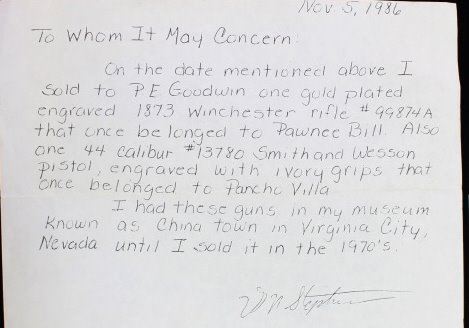 Nov 5, 1986
To Whom It May Concern:
On the date mentioned above I
sold to P.E. Goodwin one gold plated
engraved 1873 Winchester rifle #99874A
that once belonged to Pawnee Bill. Also
one 44 calibur #13780 Smith and Wesson
pistol, engraved with ivory grips that
once belonged to Pancho Villa
I had these guns in my museum
known as China town in Virginia City,
Nevada until I sold it in the 1970's.